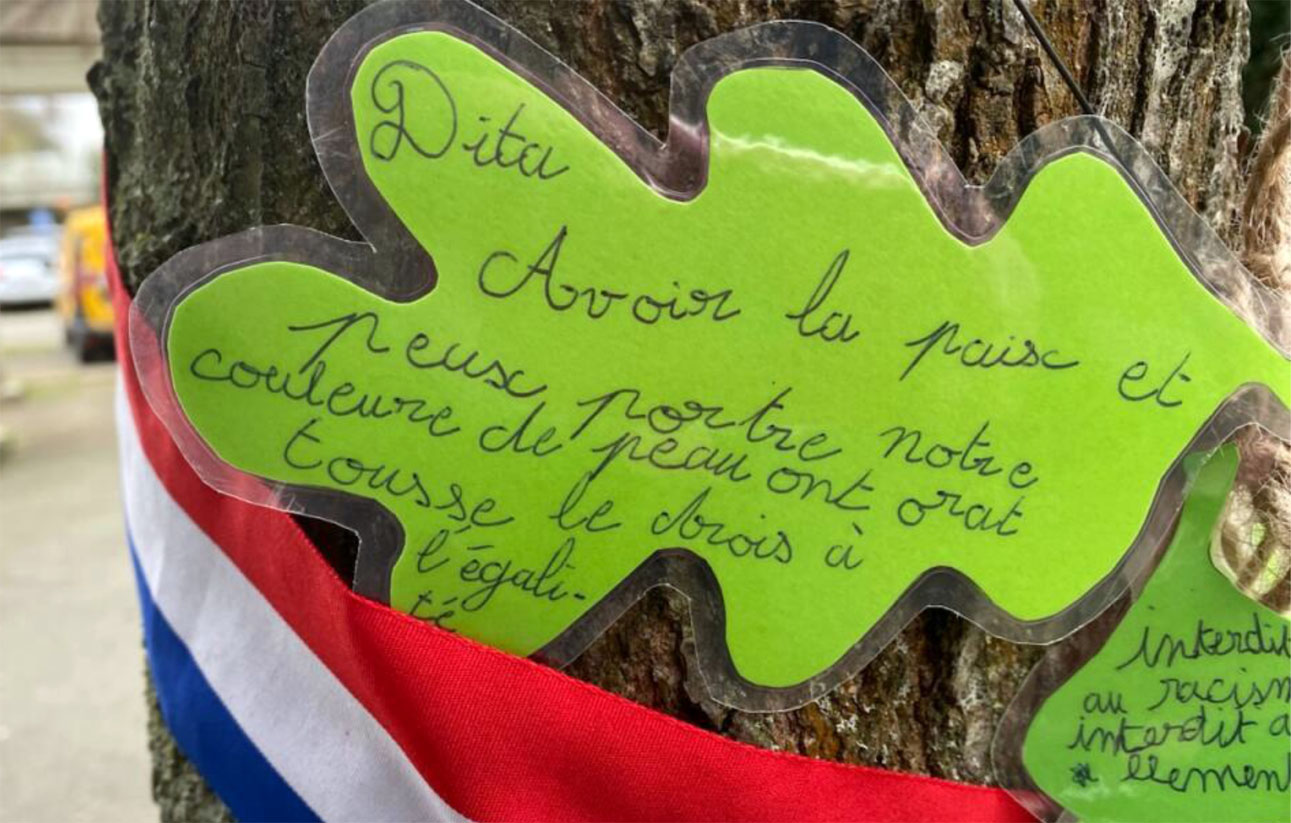 Dita
Avoir la paix et
peux portre notre
couleure de peau ont orat
tousse le drois à
l'égali-
té
interdit
au racism
interdit a
llemen